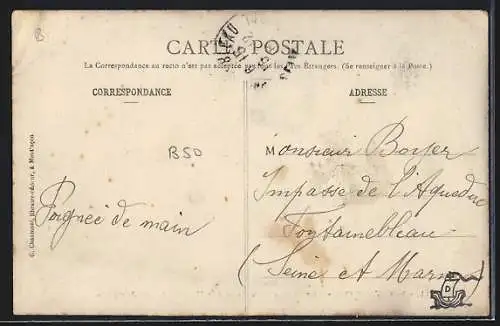 B
CARTE POSTALE
La Correspondance au recto n'est pas acceptée par tous les Pays Étrangers. (Se renseigner à la Poste.)
CORRESPONDANCE
ADRESSE
B50
Poignée de main
Monsieur Boyer
Impasse de l'Aqueduc
Fontainebleau
(Seine et Marne
D